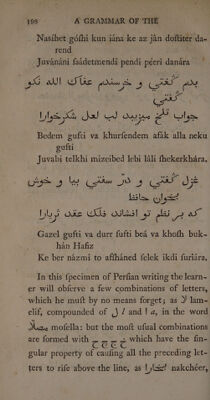 198 A GRAMMAR OF THE
Nasihet góſhi kun iána ke az ján doſtiter da-
rend
Juvánáni ſaádetmendi pendi péeri danára
بدم گفتي و خرسندم عفاك الله نكو
گفتي
جواب تلخ ميزيبد لب لعل شكرخوارا
Bedem gufti va khurſendem afák alla neku
gufti
Juvabi telkhi mizeibed lebi láli ſhekerkhára.
غزل گفتي و در سفتي بيا و خوش
بخوان حافظ
كه بر نظم تو افشاند فلك عقد ثريارا
Gazel gufti va durr ſufti beá va khoſh buk-
hán Hafiz
Ke ber názmi to afſháned felek ikdi ſuriára.
In this ſpecimen of Perſian writing the learn-
er will obſerve a few combinations of letters,
which he muſt by no means forget; as لا lam-
elif, compounded of ل l and ا a, in the word
مصلا moſella: but the moſt uſual combinations
are formed with ج چ ح خ which have the ſin-
gular property of cauſing all the preceding let-
ters to riſe above the line, as نخچير nakchéer,